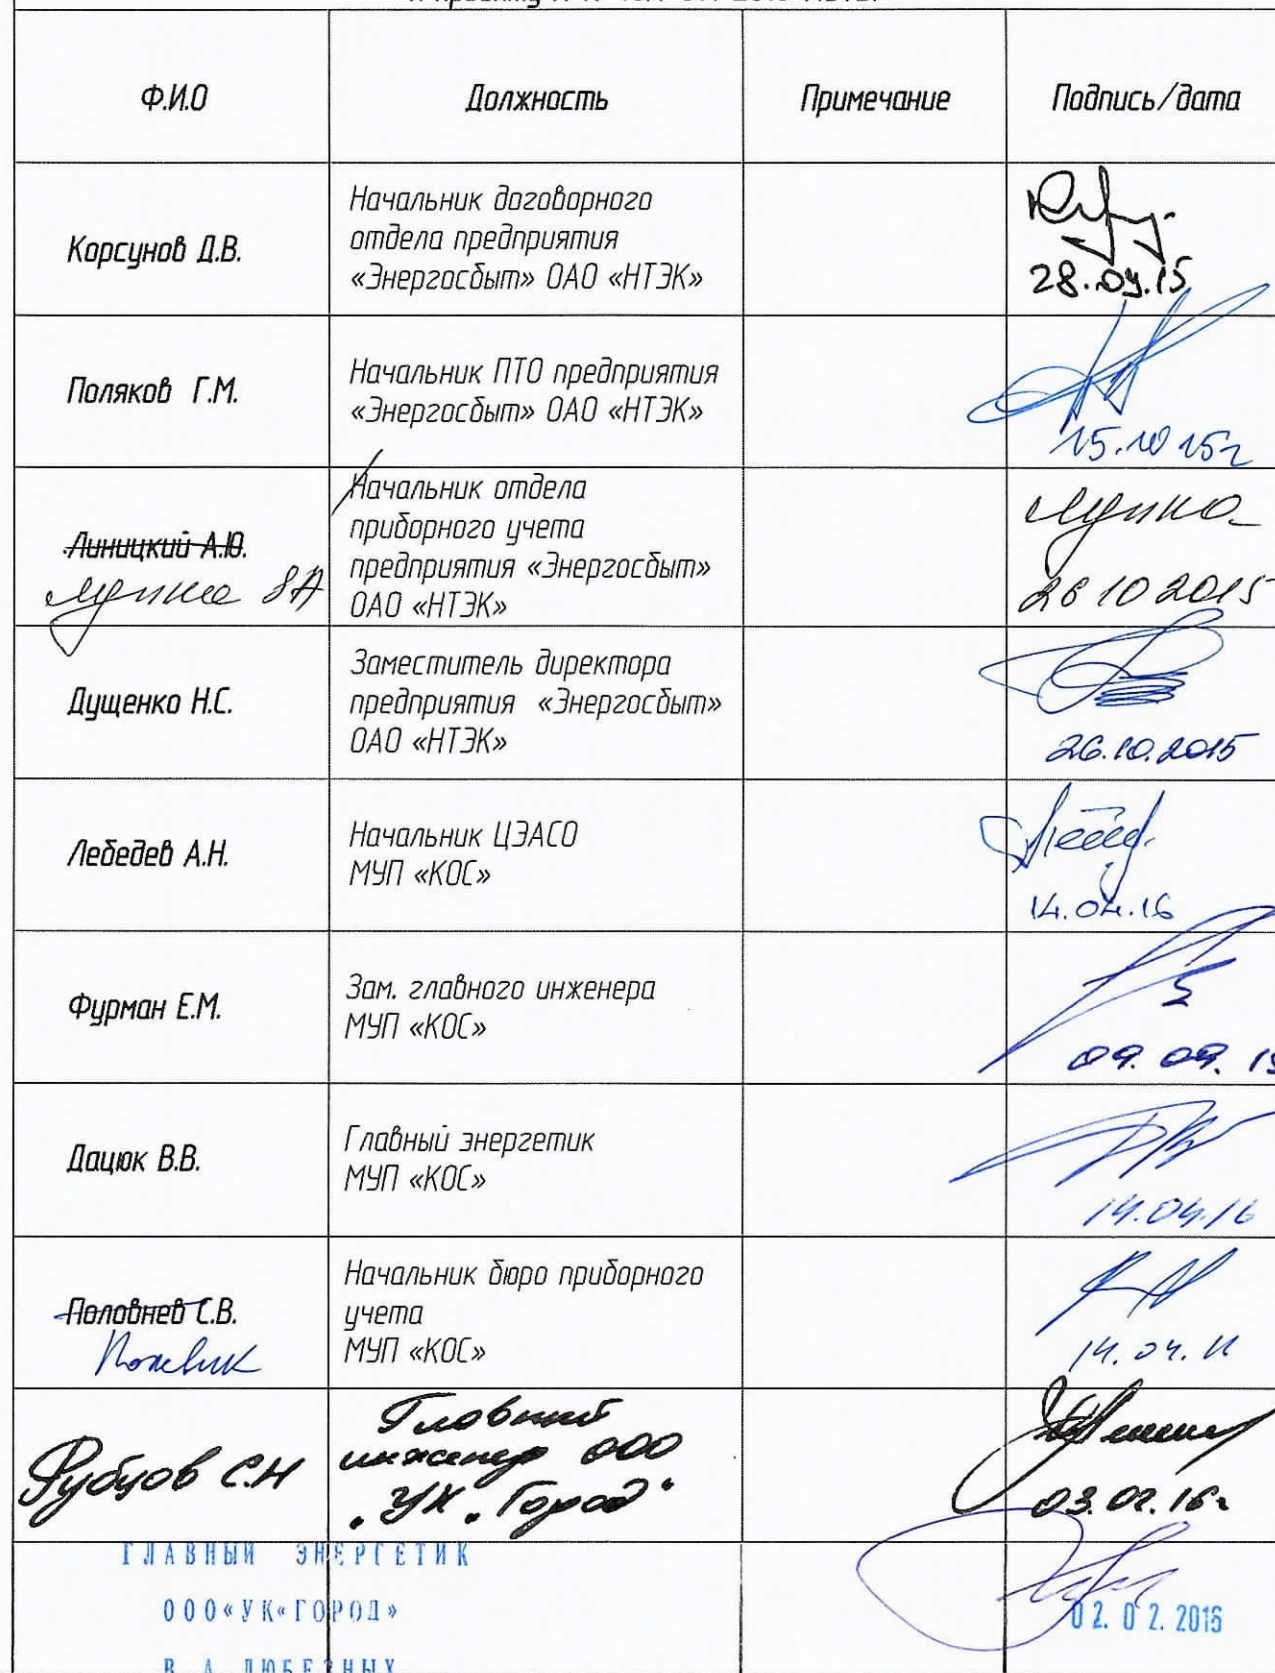 Ф.И.О
Должность
Примечание
Подпись/дата
Корсунов Д.В.
Начальник договорного
отдела предприятия
«Энергосбыт» ОАО «НТЭК»
28.09.15
Поляков Г.М.
Начальник ПТО предприятия
«Энергосбыт» ОАО «НТЭК»
15.10 15г
Линицкий А.Ю.
Начальник отдела
приборного учета
предприятия «Энергосбыт»
ОАО «НТЭК»
26 10 2015
Дущенко Н.С.
Заместитель директора
предприятия «Энергосбыт»
ОАО «НТЭК»
26.10.2015
Лебедев А.Н.
Начальник ЦЭАСО
МУП «КОС»
14.04.16
Фурман Е.М.
Зам. главного инженера
МУП «КОС»
Дацюк В.В.
Главный энергетик
МУП «КОС»
14.04.16
Половнев С.В.
Начальник бюро приборного
учета
МУП «КОС»
Рубцов С.Н
Главный
инженер ООО
"УК "Город"
03.02.16г
ГЛАВНЫЙ ЭНЕРГЕТИК
ООО«УК«ГОРОД»
В.А.ЛЮБЕЗНЫХ
02.02.2016